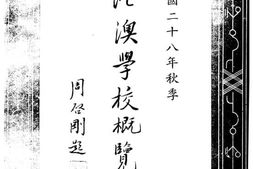 國二十八年秋季
澳學校概覽
周啓剛題